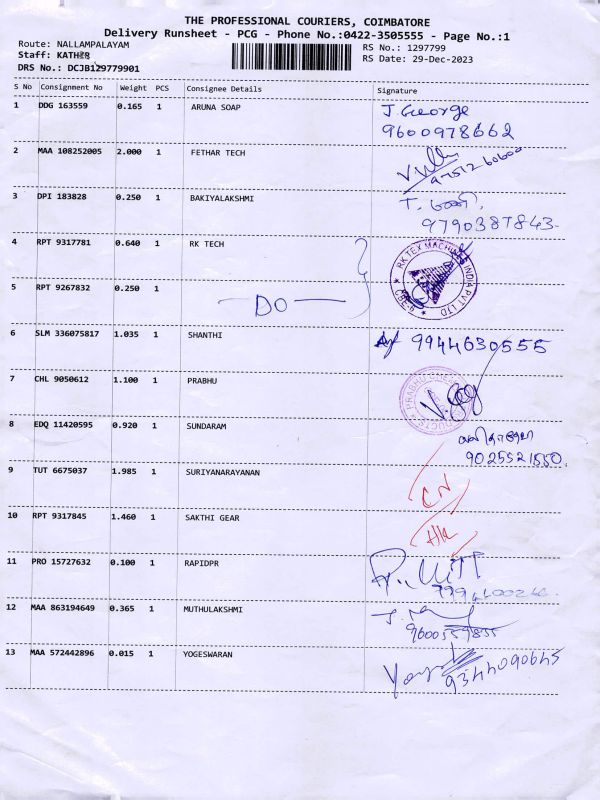 THE PROFESSIONAL COURIERS, COIMBATORE
Delivery Runsheet - PCG - Phone No.:0422-3505555 - Page No.:1
Route: NALLAMPALAYAM RS No.: 1297799
Staff: KATHIR RS Date: 29-Dec-2023
DRS No.: DCJB129779901
S No Consignment No Weight PCS Consignee Details Signature
1 DDG 163559 0.165 1 ARUNA SOAP J. George
9600978662
2 MAA 108252005 2.000 1 FETHAR TECH
3 DPI 183828 0.250 1 BAKIYALAKSHMI
9790387843
4 RPT 9317781 0.640 1 RK TECH RK TEX MACHINES INDIA PVT LTD CBE-6
5 RPT 9267832 0.250 1 DO
6 SLM 336075817 1.035 1 SHANTHI 9944630555
7 CHL 9050612 1.100 1 PRABHU PRABHU
8 EDQ 11420595 0.920 1 SUNDARAM
9025521550
9 TUT 6675037 1.985 1 SURIYANARAYANAN CN
10 RPT 9317845 1.460 1 SAKTHI GEAR
11 PRO 15727632 0.100 1 RAPIDPR
12 MAA 863194649 0.365 1 MUTHULAKSHMI
9600559855
13 MAA 572442896 0.015 1 YOGESWARAN 9344090645